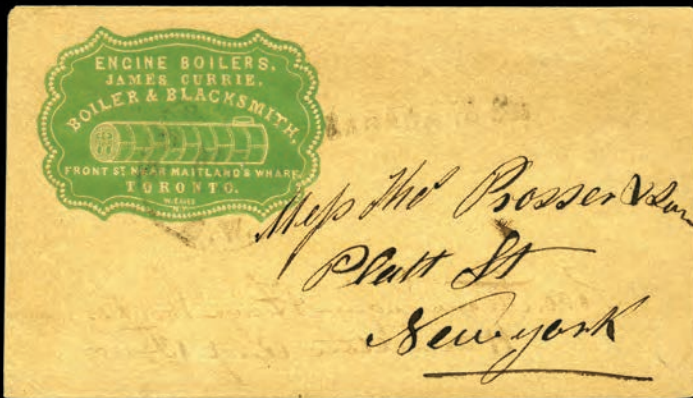 ENGINE BOILERS,
JAMES CURRIE,
BOILER & BLACKSMITH,
FRONT ST NEAR MAITLAND'S WHARF
TORONTO.
Mess Thos Prosser & Son
Platt St
New york